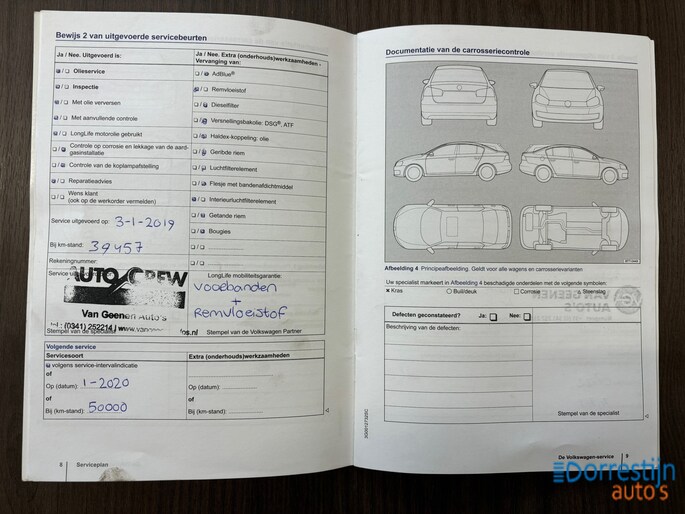 Bewijs 2 van uitgevoerde servicebeurten
Ja / Nee. Uitgevoerd is:
Oliesservice
Inspectie
Met olie verversen
Met aanvullende controle
LongLife motorolie gebruikt
Controle op corrosie en lekkage van de aard-
gasinstallatie
Controle van de koplampafstelling
Reparatieadvies
Wens klant
(ook op de werkorder vermelden)
Service uitgevoerd op: 3-1-2019
Bij km-stand: 39457
Rekeningnummer:
Service
AUTO CREW
Van Geenen Auto's
(0341) 252214 / www.van
os.nl
Stempel van de specialist
Ja / Nee. Extra (onderhouds)werkzaamheden -
Vervanging van:
AdBlue®
Remvloeistof
Dieselfilter
Versnellingsbakolie: DSG®, ATF
Haldex-koppeling: olie
Geribde riem
Luchtfilterelement
Flesje met bandenafdichtmiddel
Interieurluchtfilterelement
Getande riem
Bougies
LongLife mobiliteitsgarantie:
voorbanden
+
Remvloeistof
Stempel van de Volkswagen Partner
Volgende service
Servicesoort
volgens service-intervalindicatie
of
Op (datum): 1-2020
of
Bij (km-stand): 50000
Extra (onderhouds)werkzaamheden
Op (datum):
of
Bij (km-stand):
8 Serviceplan
Documentatie van de carrosseriecontrole
Afbeelding 4 Principeafbeelding. Geldt voor alle wagens en carrosserievarianten
Uw specialist markeert in Afbeelding 4 beschadigde onderdelen met de volgende symbolen:
× Kras ○ Buil/deuk □ Corrosie Steenslag
Defecten geconstateerd? Ja: Nee:
Beschrijving van de defecten:
Stempel van de specialist
De Volkswagen-service 9
Dorrestijn
auto's